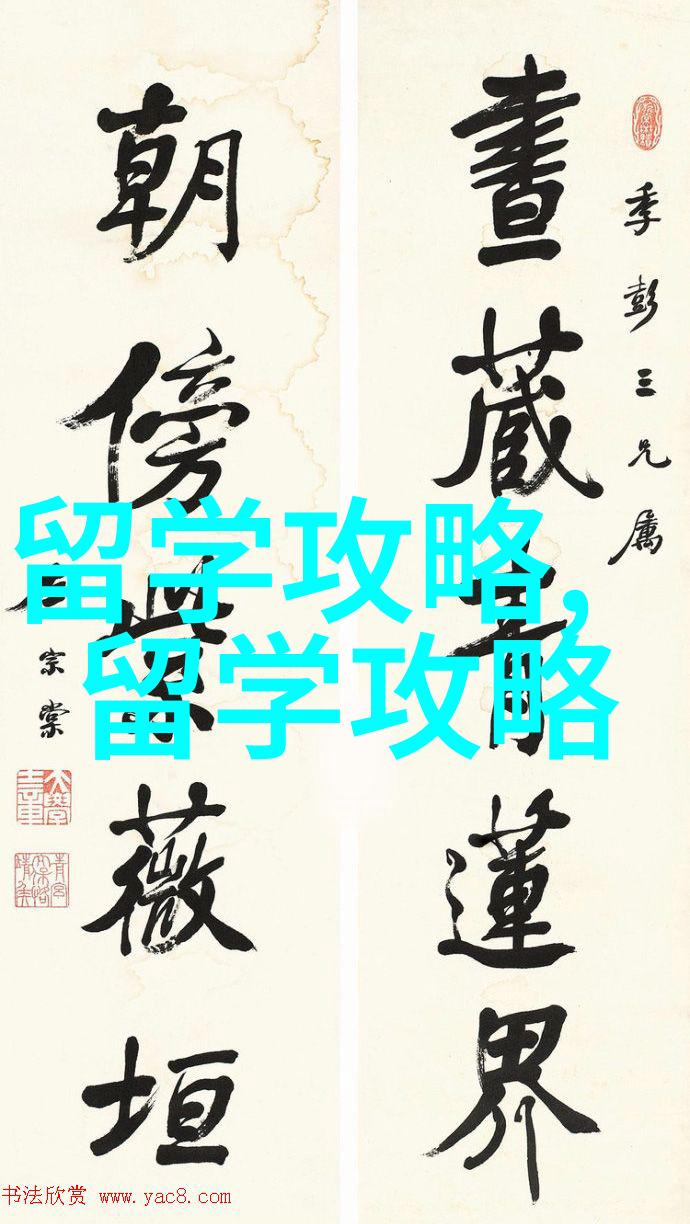 季彭三兄属
晝藏青蓮界
朝傍薇垣
宗棠
留学攻略,
留学攻略
书法欣赏 www.yac8.com